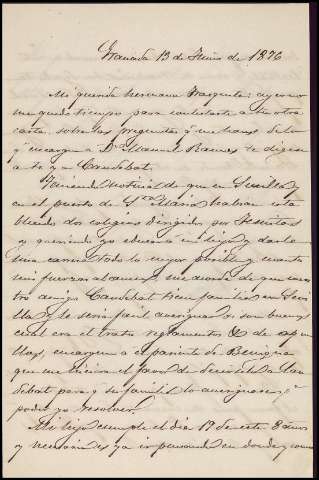 Granada 13 de Junio de 1876
Mi querida hermana Margarita: ayer no
me quedó tiempo para contestarte a tu otra
carta sobre las preguntas q. me haces de lo
q. encargué a Dn. Manuel Ramos te dijese
a ti y a Candebat.
Teniendo noticia de que en Sevilla y
en el puerto de Sta. Maria habian esta
blecido dos colegios dirigidos por Jesuitas
y queriendo yo educar a mi hijo y darle
una carrera todo lo mejor posible y cuanto
mis fuerzas alcancen, me acordé de que nues
tro amigo Candebat tiene familia en Sevi
lla y le seria facil averiguar si son buenos
cual era el trato reglamentos & de aque
llos, encargué a el pariente de Benigna
que me hiciera el favor de decirselo a Can
debat para q. su familia lo averiguase, y
poder yo resolver.
Mi hijo cumple el dia 17 de este 8 años
y necesario es ya ir pensando en donde, como